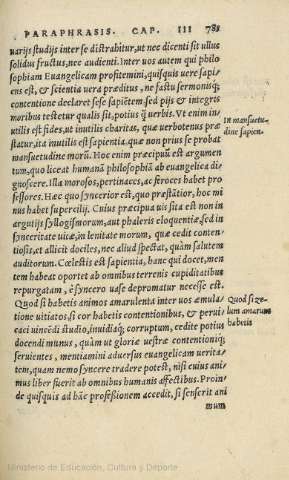 PARAPHRASIS. CAP. III 785
uarijs studijs inter se distrahitur, ut nec dicenti sit ullus
solidus fructus, nec audienti. Inter uos autem qui philo
sophiam Euangelicam profitemini, quisquis uere sapi/
ens est, & scientia uera præditus, ne factu sermonisq;
contentione declaret sese sapiẽtem, sed pijs & integris
moribus testetur qualis sit, potius q̃ uerbis. Vt enim in
utilis est fides, ut inutilis charitas, quæ uerbotenus præ
statur, ita inutilis est sapientia, quæ non prius se probat
mansuetudine morũ. Hoc enim præcipuũ est argumen
tum, quo liceat humanã philosophiã ab euangelica di/
gnoscere. Illa morosos, pertinaces, ac feroces habet pro
fessores. Hæc quo syncerior est, quo præstãtior, hoc mi
nus habet supercilij. Cuius præcipua uis sita est non in
argutijs syllogismorum, aut phaleris eloquentiæ, sed in
synceritate uitæ, in lenitate morum, quæ cedit conten/
tiosis, et allicit dociles, nec aliud spectat, quàm salutem
auditorum. Cœlestis est sapientia, hanc qui docet, men
tem habeat oportet ab omnibus terrenis cupiditatibus
repurgatam, è syncero uase depromatur necesse est.
Quod si habetis animos amarulenta inter uos æmula/
tione uitiatos, si cor habetis contentionibus, & perui
caci uincẽdi studio, inuidiaq; corruptum, cedite potius
docendi munus, quàm ut gloriæ uestræ contentioniq;
seruientes, mentiamini aduersus euangelicam uerita/
tem, quam nemo syncere tradere potest, nisi cuius ani/
mus liber fuerit ab omnibus humanis affectibus. Proin/
de quisquis ad hãc professionem accedit, si senserit ani
mum
In mansuetu/
dine sapien.
Quod si ze/
lum amarum
habetis
Ministerio de Educación, Cultura y Deporte